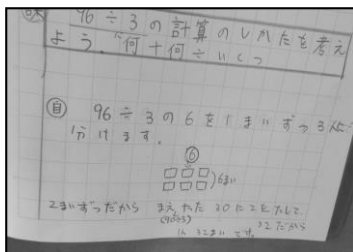 96÷3の計算のしかたを考え
よう。"何十何÷いくつ
自 96÷3の6を1まいずつ3人に
分けます。
6
6まい
2まいずつだから まえやった30に2をたして
(90÷3) 32だから
32まいです。